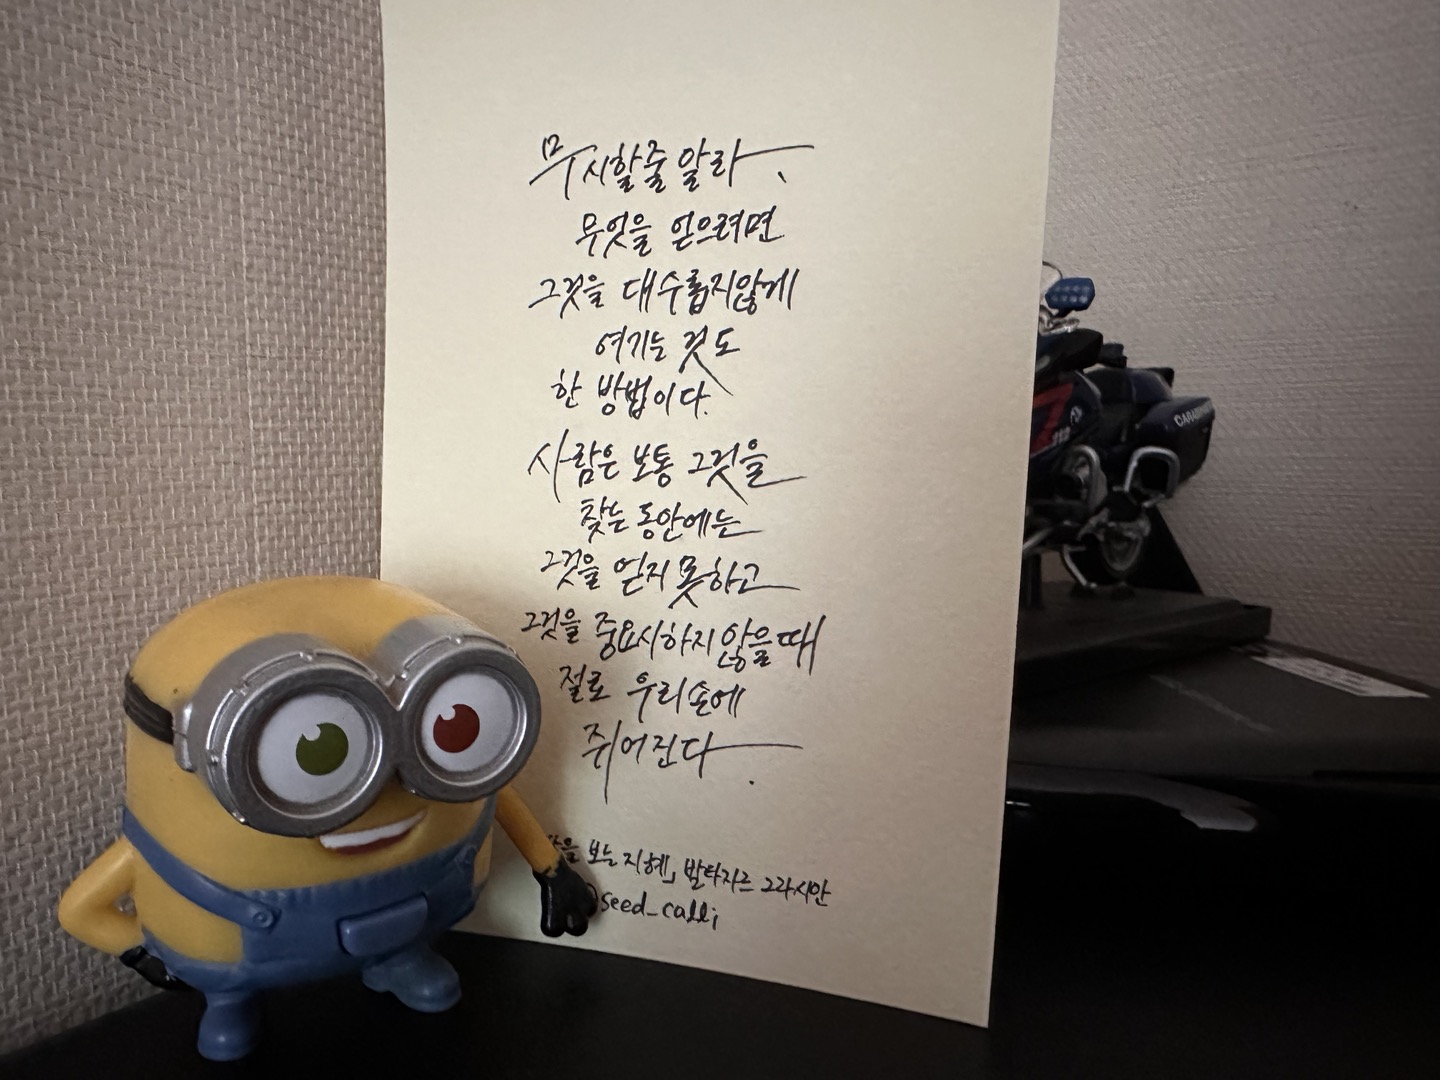 무시할줄 알라.
무엇을 얻으려면
그것을 대수롭지않게
여기는 것도
한 방법이다.
사람은 보통 그것을
찾는 동안에는
그것을 얻지 못하고
그것을 중요시하지 않을때
절로 우리손에
쥐어진다.
보는 지혜」 발타자르 그라시안
@seed_calli